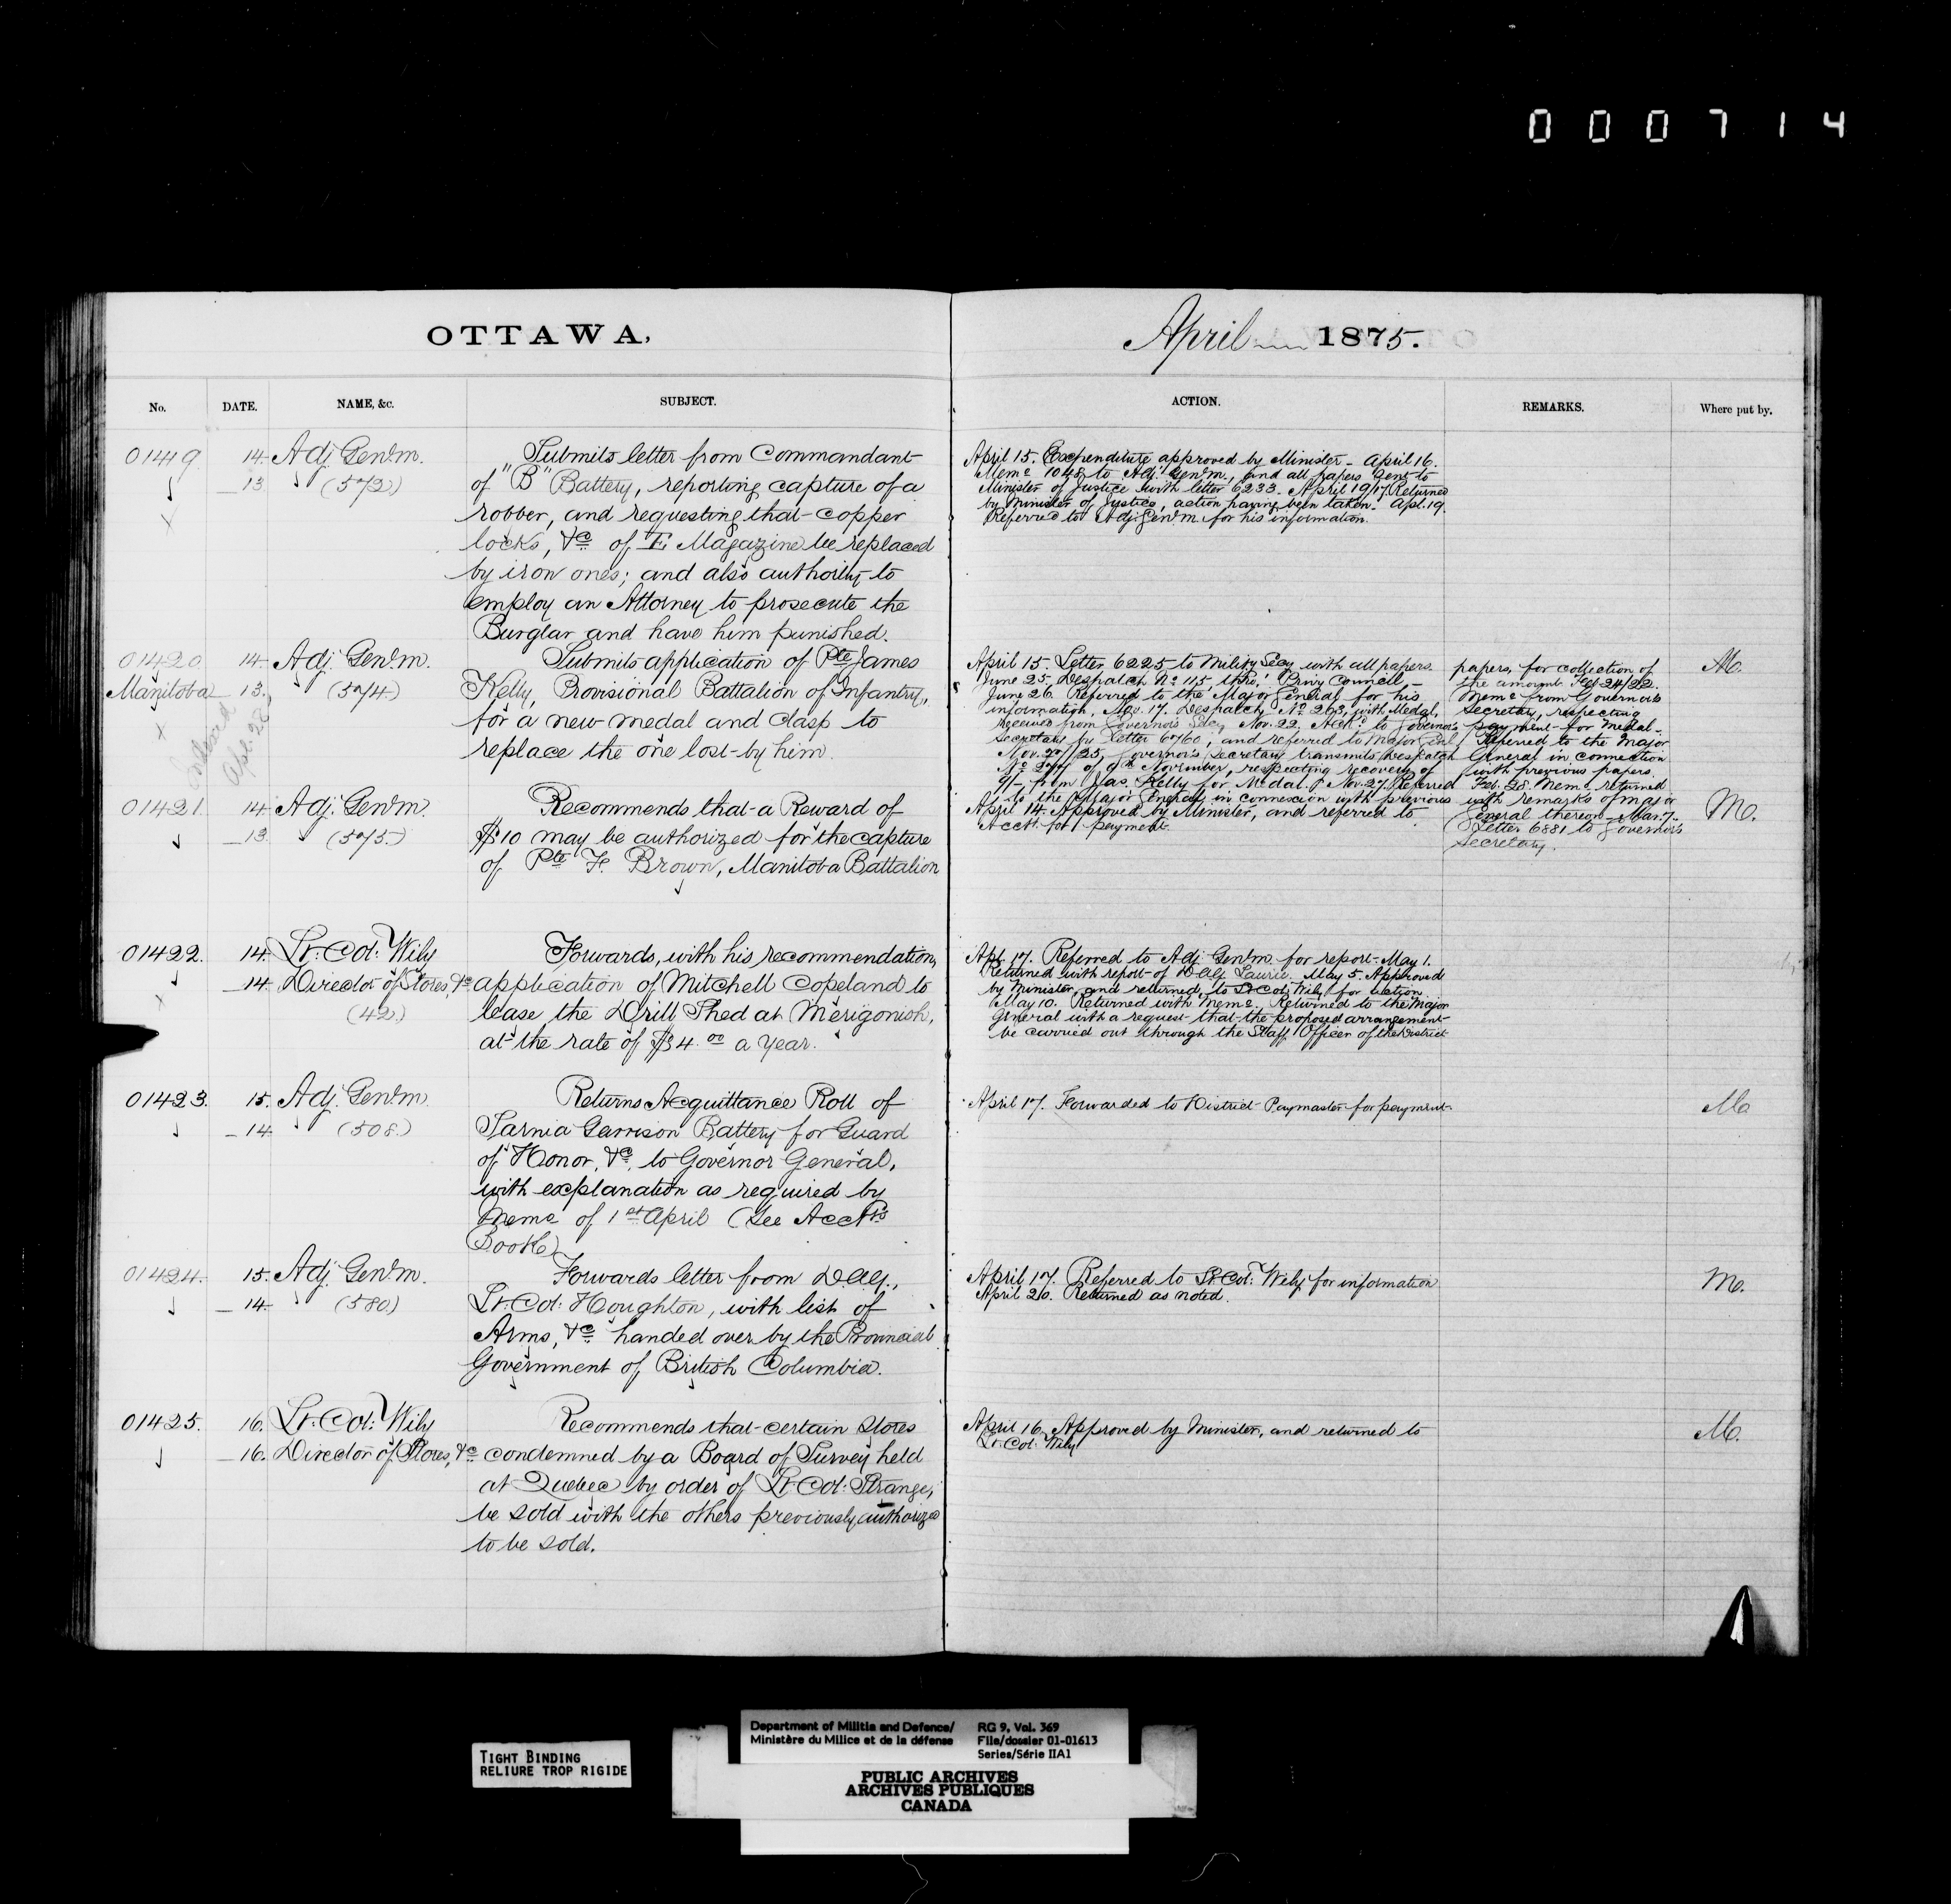 000714
OTTAWA,
April 1875.
No. DATE. NAME, &c. SUBJECT. ACTION. REMARKS. Where put by.
01419 14. Adj. Genl. m.
13 (572)
Submits letter from Commandant
of "B" Battery, reporting capture of a
robber, and requesting that copper
locks, &c. of E Magazine be replaced
by iron ones; and also authority to
employ an Attorney to prosecute the
Burglar and have him punished.
April 15. Expenditure approved by Minister - April 16.
Memo 1048 to Adj. Genl. m., and all papers sent to
Minister of Justice with letter 6233. April 19/17. Returned
by Minister of Justice, action having been taken. Apl. 19.
Referred to Adj. Genl. m. for his information.
01420 14. Adj. Genl. m.
Manitoba 13. (574)
Apl. 28
Submits application of Pte James
Kelly, Provisional Battalion of Infantry,
for a new medal and clasp to
replace the one lost by him.
April 15. Letter 6225 to Military Secy with all papers.
June 25. Despatch No 115, thro' Privy Council -
June 26. Referred to the Major General for his
information. Nov. 17. Despatch No 263, with Medal,
received from Governor's Secy. Nov. 22. Ackd. to Governor's
Secretary by letter 6760; and referred to Major Genl.
Nov. 27/25, Governor's Secretary transmits Despatch
of 9th November, respecting recovery of
from Jas. Kelly for Medal. Nov. 27. Referred
to the Major General in connexion with previous
papers, for collection of
the amount. Feb 24/22.
Memo from Governor's
Secretary, respecting
payment for medal -
Referred to the Major
General in connection
with previous papers.
Feb. 28. Memo returned
with remarks of Major
General thereon - Mar. 7.
Letter 6881 to Governor's
Secretary.
M.
01421. 14. Adj. Genl. m.
13. (575)
Recommends that a Reward of
$10 may be authorized for the capture
of Pte F. Brown, Manitoba Battalion
April 14. Approved by Minister, and referred to
Acct. for payment.
M.
01422. 14. Lt. Col: Wily
14. Director of Stores, &c
(42)
Forwards, with his recommendation,
application of Mitchell Copeland to
lease the Drill Shed at Merigonish,
at the rate of $4.00 a year.
Apl. 17. Referred to Adj. Genl. m. for report - May 1.
Returned with report of D.A.G. Laurie. May 5. Approved
by Minister, and returned to Lt. Col: Wily for action
May 10. Returned with Memo. Returned to the Major
General with a request that the proposed arrangement
be carried out through the Staff Officer of the District
01423. 15. Adj. Genl. m.
14 (508.)
Returns Acquittance Roll of
Sarnia Garrison Battery for Guard
of Honor, &c, to Governor General,
with explanation as required by
Memo of 1st April (See Acct's
Book)
April 17. Forwarded to District Paymaster for payment.
M.
01424. 15. Adj. Genl. m.
14 (580)
Forwards letter from D.A.G.,
Lt. Col: Houghton, with list of
Arms, &c handed over by the Provincial
Government of British Columbia.
April 17. Referred to Lt. Col: Wily for information
April 20. Returned as noted.
M.
01425. 16. Lt. Col: Wily
16. Director of Stores, &c
Recommends that certain Stores
condemned by a Board of Survey held
at Quebec by order of Lt. Col: Strange,
be sold with the others previously authorized
to be sold.
April 16. Approved by Minister, and returned to
Lt. Col: Wily
M.
TIGHT BINDING
RELIURE TROP RIGIDE
Department of Militia and Defence/
Ministère du Milice et de la défense
RG 9, Vol. 369
File/dossier 01-01613
Series/Série IIA1
PUBLIC ARCHIVES
ARCHIVES PUBLIQUES
CANADA